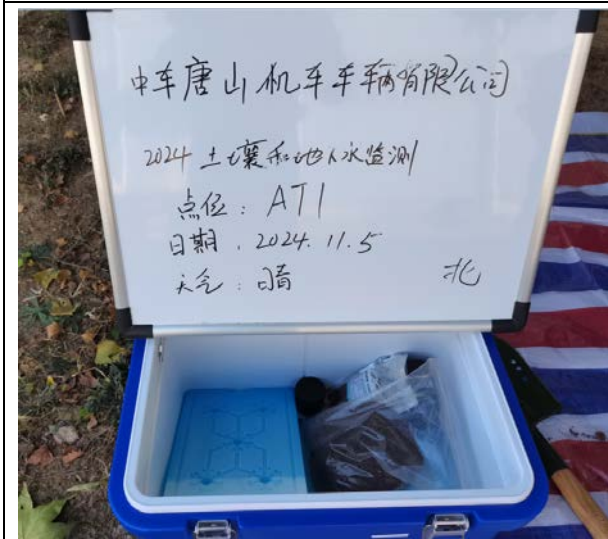 中车唐山机车车辆有限公司
2024 土壤和地下水监测
点位：AT1
日期：2024.11.5
天气：晴 北